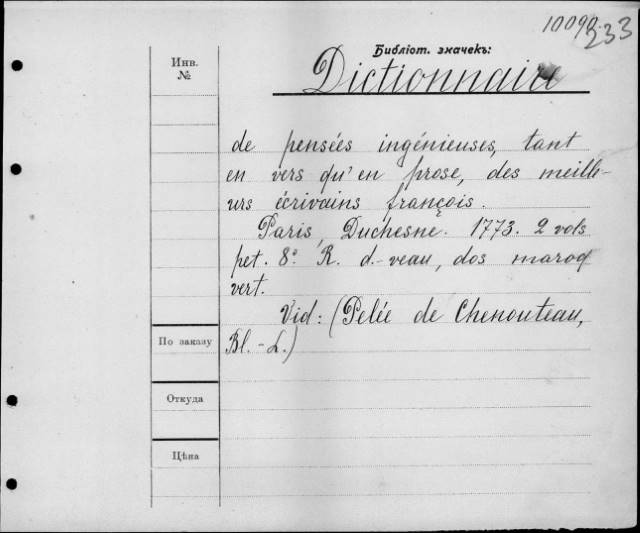 10090.
233
Библіот. значекъ:
Инв.
№
Dictionnaire
de pensées ingénieuses, tant
en vers qu'en prose, des meille-
urs écrivains françois.
Paris, Duchesne. 1773. 2 vols
pet. 8º R. d.-veau, dos maroq
vert.
Vid: (Pelée de Chenouteau,
Bl.-L.)
По заказу
Откуда
Цѣна